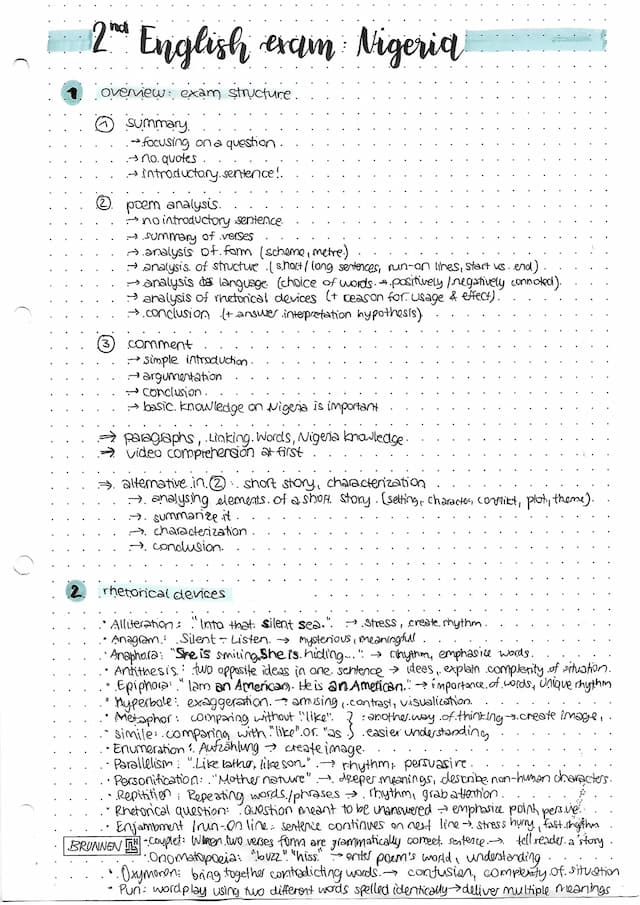 2nd English exam: Nigeria
1 overview: exam structure
① summary
→ focusing on a question
→ no quotes
→ introductory sentence!
② poem analysis
→ no introductory sentence
→ summary of verses
→ analysis of form (scheme, metre)
→ analysis of structure (short/long sentences, run-on lines, start vs. end)
→ analysis language (choice of words → positively/negatively connoted)
→ analysis of rhetorical devices (+ reason for usage & effect)
→ conclusion (+ answer interpretation hypothesis)
③ comment
→ simple introduction
→ argumentation
→ conclusion
→ basic knowledge on Nigeria is important
⇒ paragraphs, linking words, Nigeria knowledge
⇒ video comprehension at first
⇒ alternative in ②: short story, characterization
→ analysing elements of a short story (setting, character, conflict, plot, theme)
→ summarize it
→ characterization
→ conclusion
2 rhetorical devices
· Alliteration: "Into that silent sea." → stress, create rhythm
· Anagram: Silent - Listen → mysterious, meaningful
· Anaphora: "She is smiling, She is hiding..." → rhythm, emphasize words
· Antithesis: two opposite ideas in one sentence → idees, explain complexity of situation
· Epiphora: "I am an American. He is an American." → importance of words, unique rhythm
· Hyperbole: exaggeration → amusing, contrast, visualisation
· Metaphor: comparing without "like" } another way of thinking → create image,
· Simile: comparing with "like" or "as" } easier understanding
· Enumeration: Aufzählung → create image
· Parallelism: "Like father, like son." → rhythm, persuasive
· Personification: "Mother nature" → deeper meanings, describe non-human characters
· Repitition: Repeating words/phrases → rhythm, grab attention
· Rhetorical question: question meant to be unanswered → emphasize point,
· Enjambment / run-on line: sentence continues on next line → stress hurry, fast rhythm
BRUNNEN · couplet: When two verses form are grammatically correct sentence → tell reader a story
· Onomatopoeia: "buzz" "hiss" → enter poem's world, understanding
· Oxymoron: bring together contradicting words → confusion, complexity of situation
· Pun: wordplay using two different words spelled identically → deliver multiple meanings